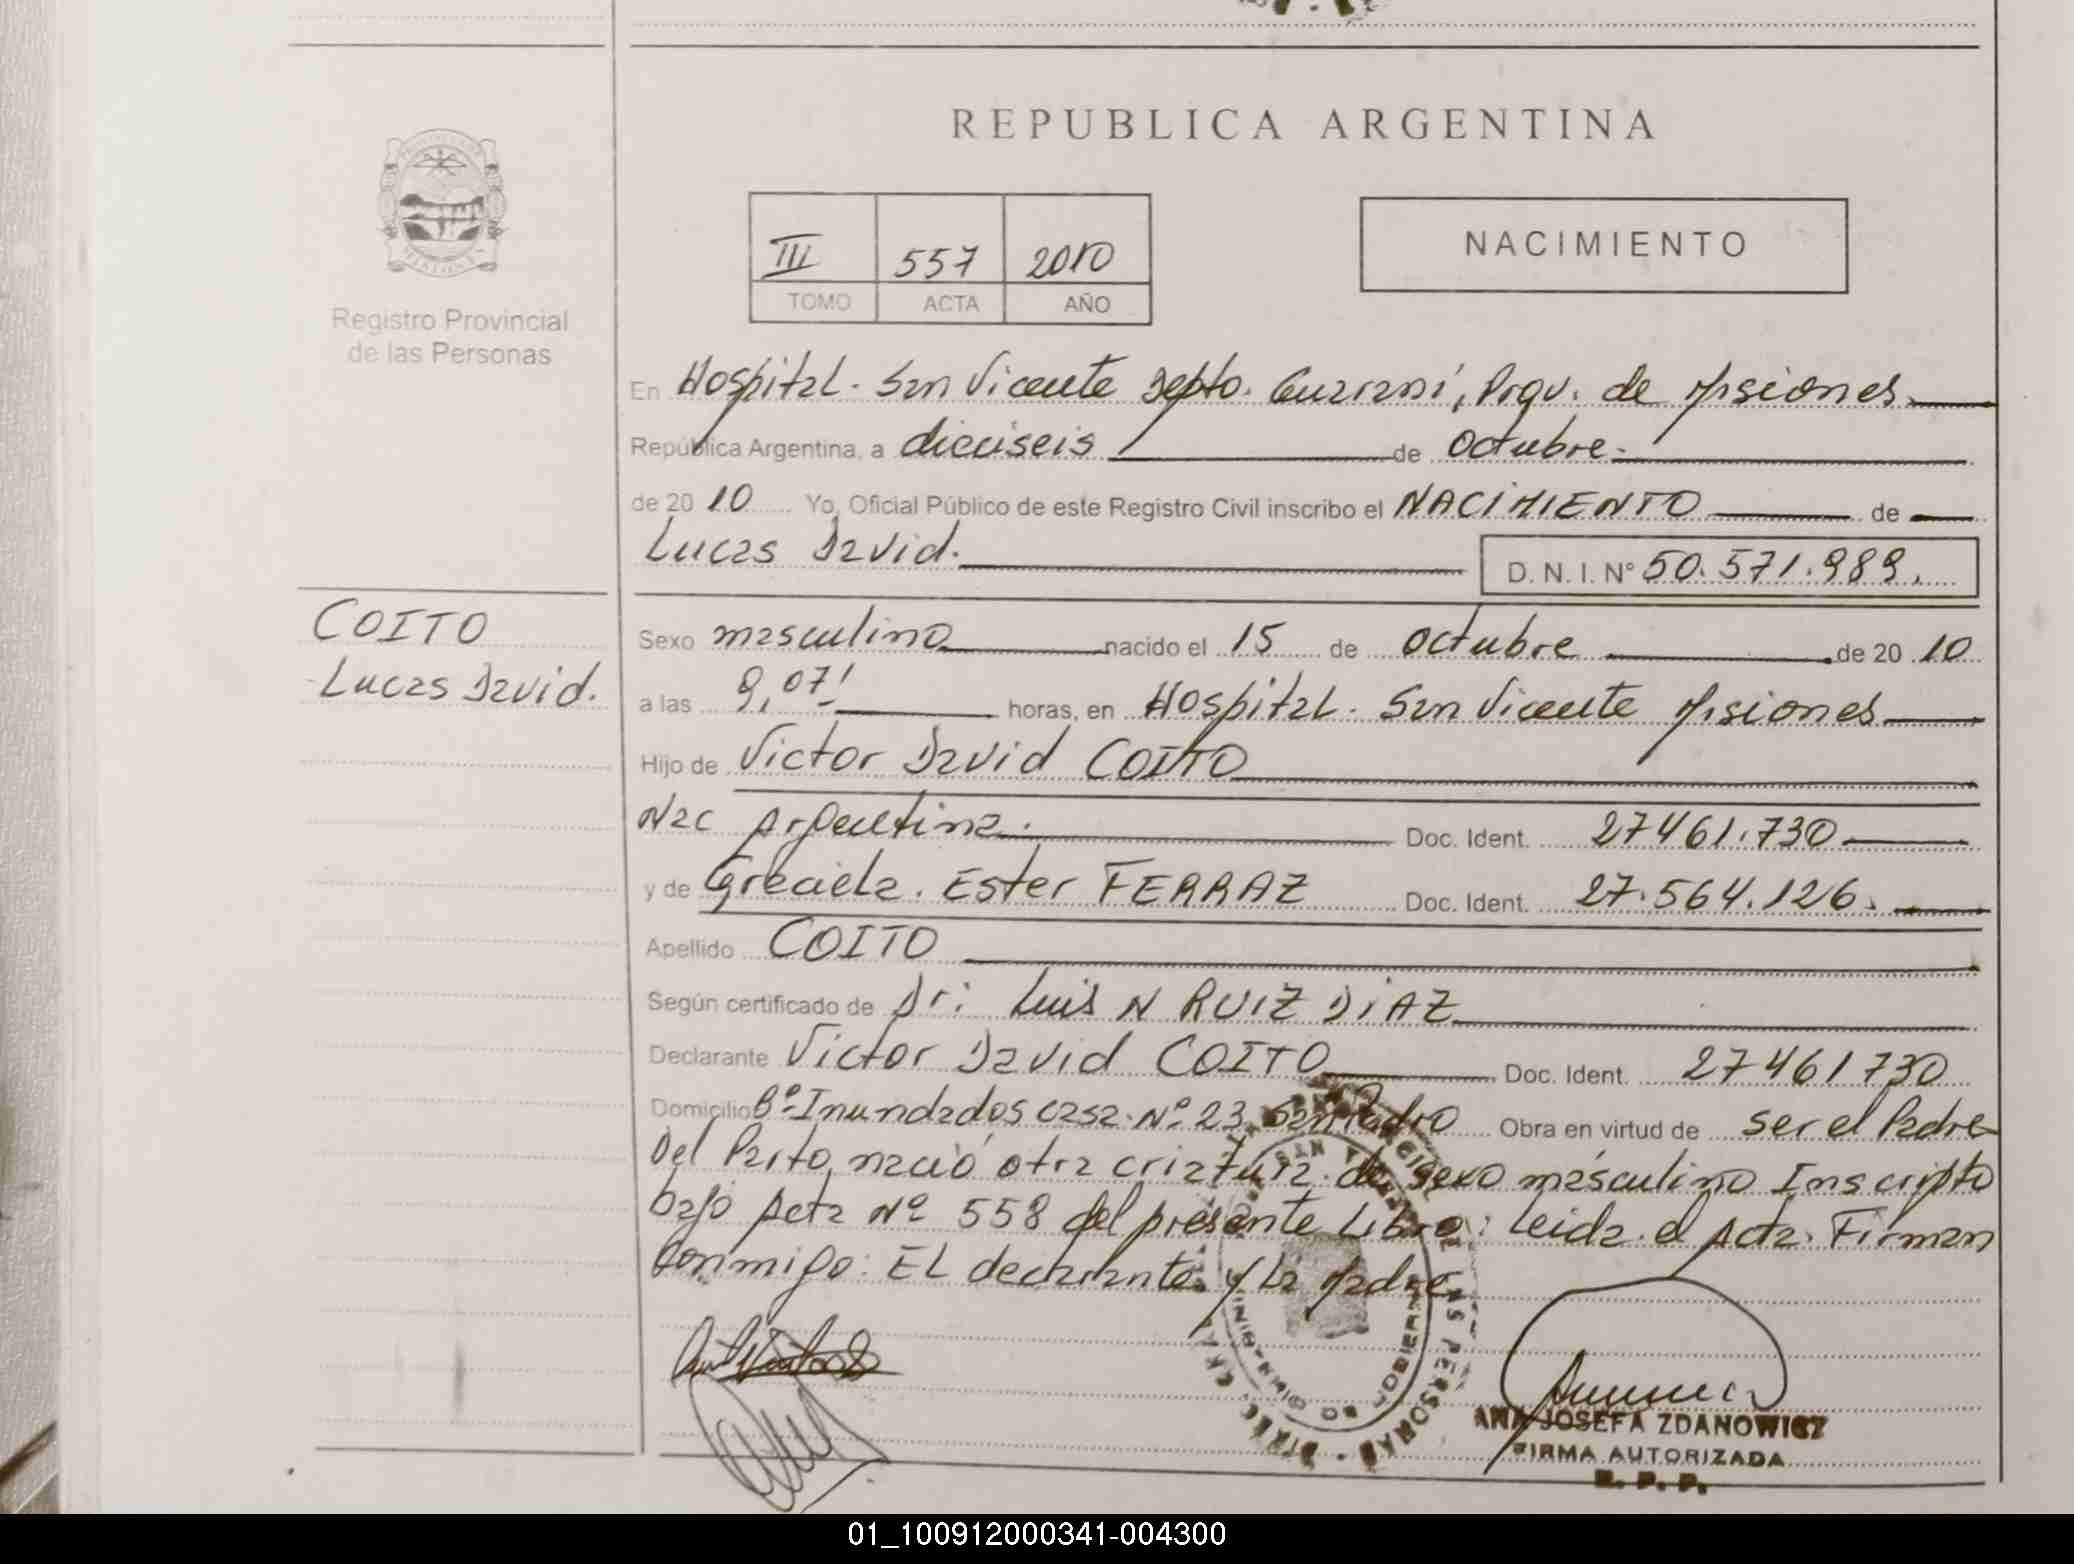 REPUBLICA ARGENTINA
III 557 2010
TOMO ACTA AÑO
NACIMIENTO
Registro Provincial
de las Personas
En Hospital. San Vicente Depto. Guaraní, Prov. de Misiones
República Argentina, a dieciseis de octubre
de 20 10 Yo, Oficial Público de este Registro Civil inscribo el NACIMIENTO de
Lucas David. D. N. I. Nº 50.571.989.
COITO
Lucas David.
Sexo masculino nacido el 15 de octubre de 20 10
a las 9,07! horas, en Hospital. San Vicente Misiones
Hijo de Victor David COITO
Nac Argentina. Doc. Ident. 27461.730
y de Graciela. Ester FERRAZ Doc. Ident. 27.564.126.
Apellido COITO
Según certificado de Dr: Luis N RUIZ DiAZ
Declarante Victor David COITO Doc. Ident. 27461730
Domicilio Bº Inundados casa. Nº 23 San Pedro Obra en virtud de ser el Padre
Del Parto, nació otra criatura. de sexo masculino Inscripto
bajo Acta Nº 558 del presente Libro: Leida. el Acta. Firman
conmigo: EL declarante y La Madre
ANA JOSEFA ZDANOWICZ
FIRMA AUTORIZADA
R. P. P.
01_100912000341-004300